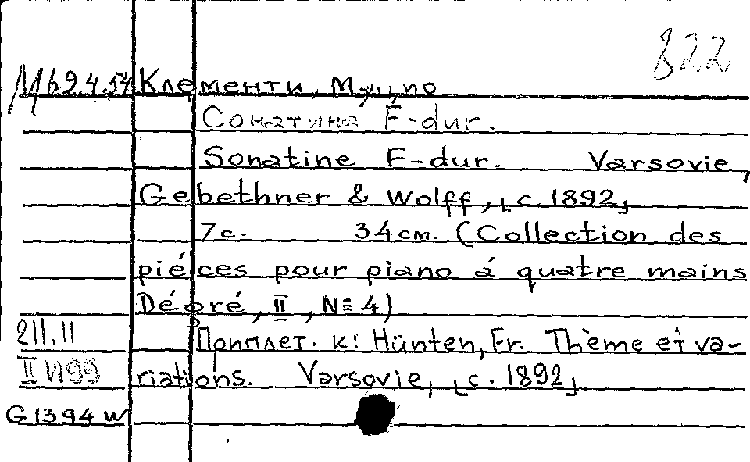 822
М62.4.54 Клементи, Муцио
Сонатина F-dur.
Sonatine F-dur. Varsovie,
Gebethner & Wolff, [c. 1892]
7с. 34 см. (Collection des
piéces pour piano á quatre mains
Degré, II, № 4)
211.11 Приплет. к: Hünten, Fr. Thème et va-
II И99 riations. Varsovie, [c. 1892]
G 1394 w